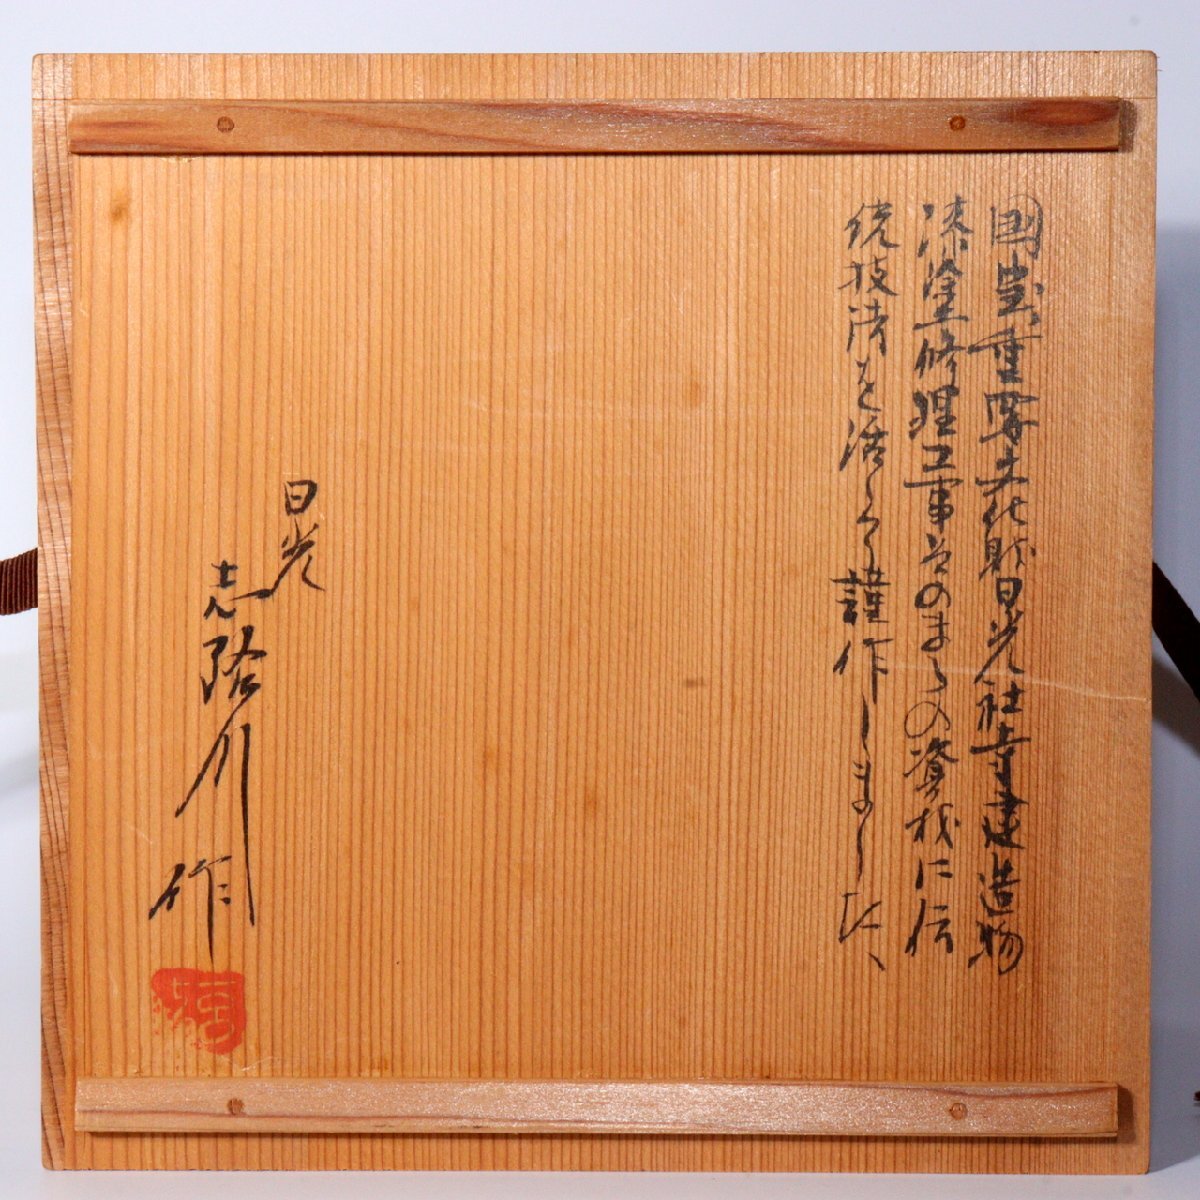 國宝重要文化財日光社寺建造物
漆塗修理工事そのまゝの資材に伝
統技術を活かして謹作しました、
日光
志路川
作